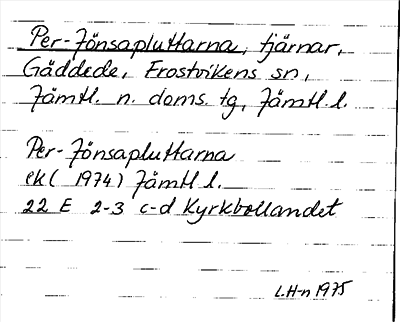 Per-Jönsapluttarna, tjärnar,
Gäddede, Frostvikens sn,
Jämtl. n. doms. tg, Jämtl. l.
Per-Jönsapluttarna
ek ( 1974) Jämtl l.
22 E 2-3 c-d Kyrkbollandet
L.H-n 1975